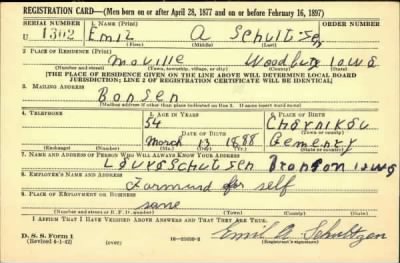 REGISTRATION CARD—(Men born on or after April 28, 1877 and on or before February 16, 1897)
SERIAL NUMBER 1. NAME (Print) ORDER NUMBER
U 1302 Emil A Schultzen
(First) (Middle) (Last)
2. PLACE OF RESIDENCE (Print)
Moville Woodbury Iowa
(Number and street) (Town, township, village, or city) (County) (State)
[THE PLACE OF RESIDENCE GIVEN ON THE LINE ABOVE WILL DETERMINE LOCAL BOARD
JURISDICTION; LINE 2 OF REGISTRATION CERTIFICATE WILL BE IDENTICAL]
3. MAILING ADDRESS
Ronsen
[Mailing address if other than place indicated on line 2. If same insert word same]
4. TELEPHONE 5. AGE IN YEARS 6. PLACE OF BIRTH
54
DATE OF BIRTH (Town or county)
March 13 1888 Gemeny
(Exchange) (Number) (Mo.) (Day) (Yr.) (State or country)
7. NAME AND ADDRESS OF PERSON WHO WILL ALWAYS KNOW YOUR ADDRESS
Louis Schultzen Bronson Iowa
8. EMPLOYER'S NAME AND ADDRESS
Farmund for self
9. PLACE OF EMPLOYMENT OR BUSINESS
sane
(Number and street or R. F. D. number) (Town) (County) (State)
I AFFIRM THAT I HAVE VERIFIED ABOVE ANSWERS AND THAT THEY ARE TRUE.
D. S. S. Form 1
(Revised 4-1-42) (over) Emil A Schultzen
(Registrant's signature)